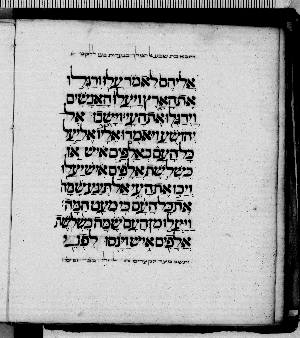 אליהם לאמר עלו ורגלו
את הארץ ויעלו האנשים
וירגלו את העי וישבו אל
יהושע ויאמרו אליו אל יעל
כל העם כאלפים איש או
כשלשת אלפים איש יעלו
ויכו את העי אל תיגע שמה
את כל העם כי מעט המה
ויעלו מן העם שמה כשלשת
אלפים איש וינסו לפני